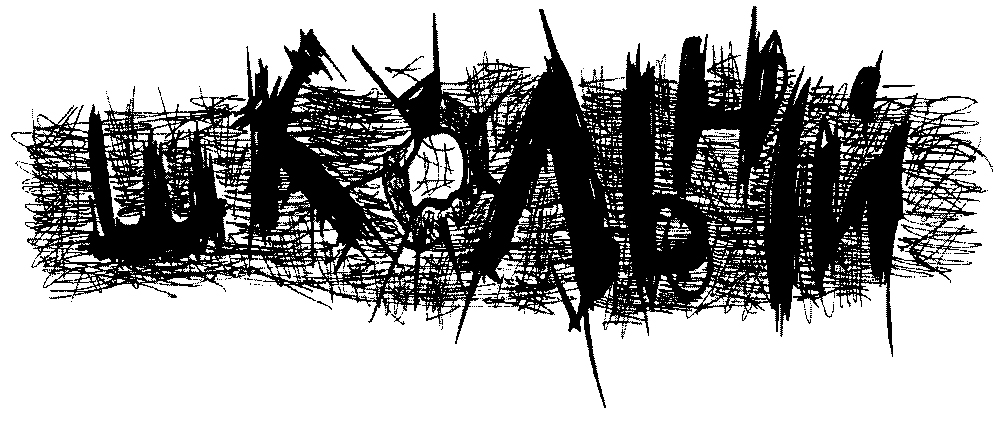 ШКОЛЬНЫЙ